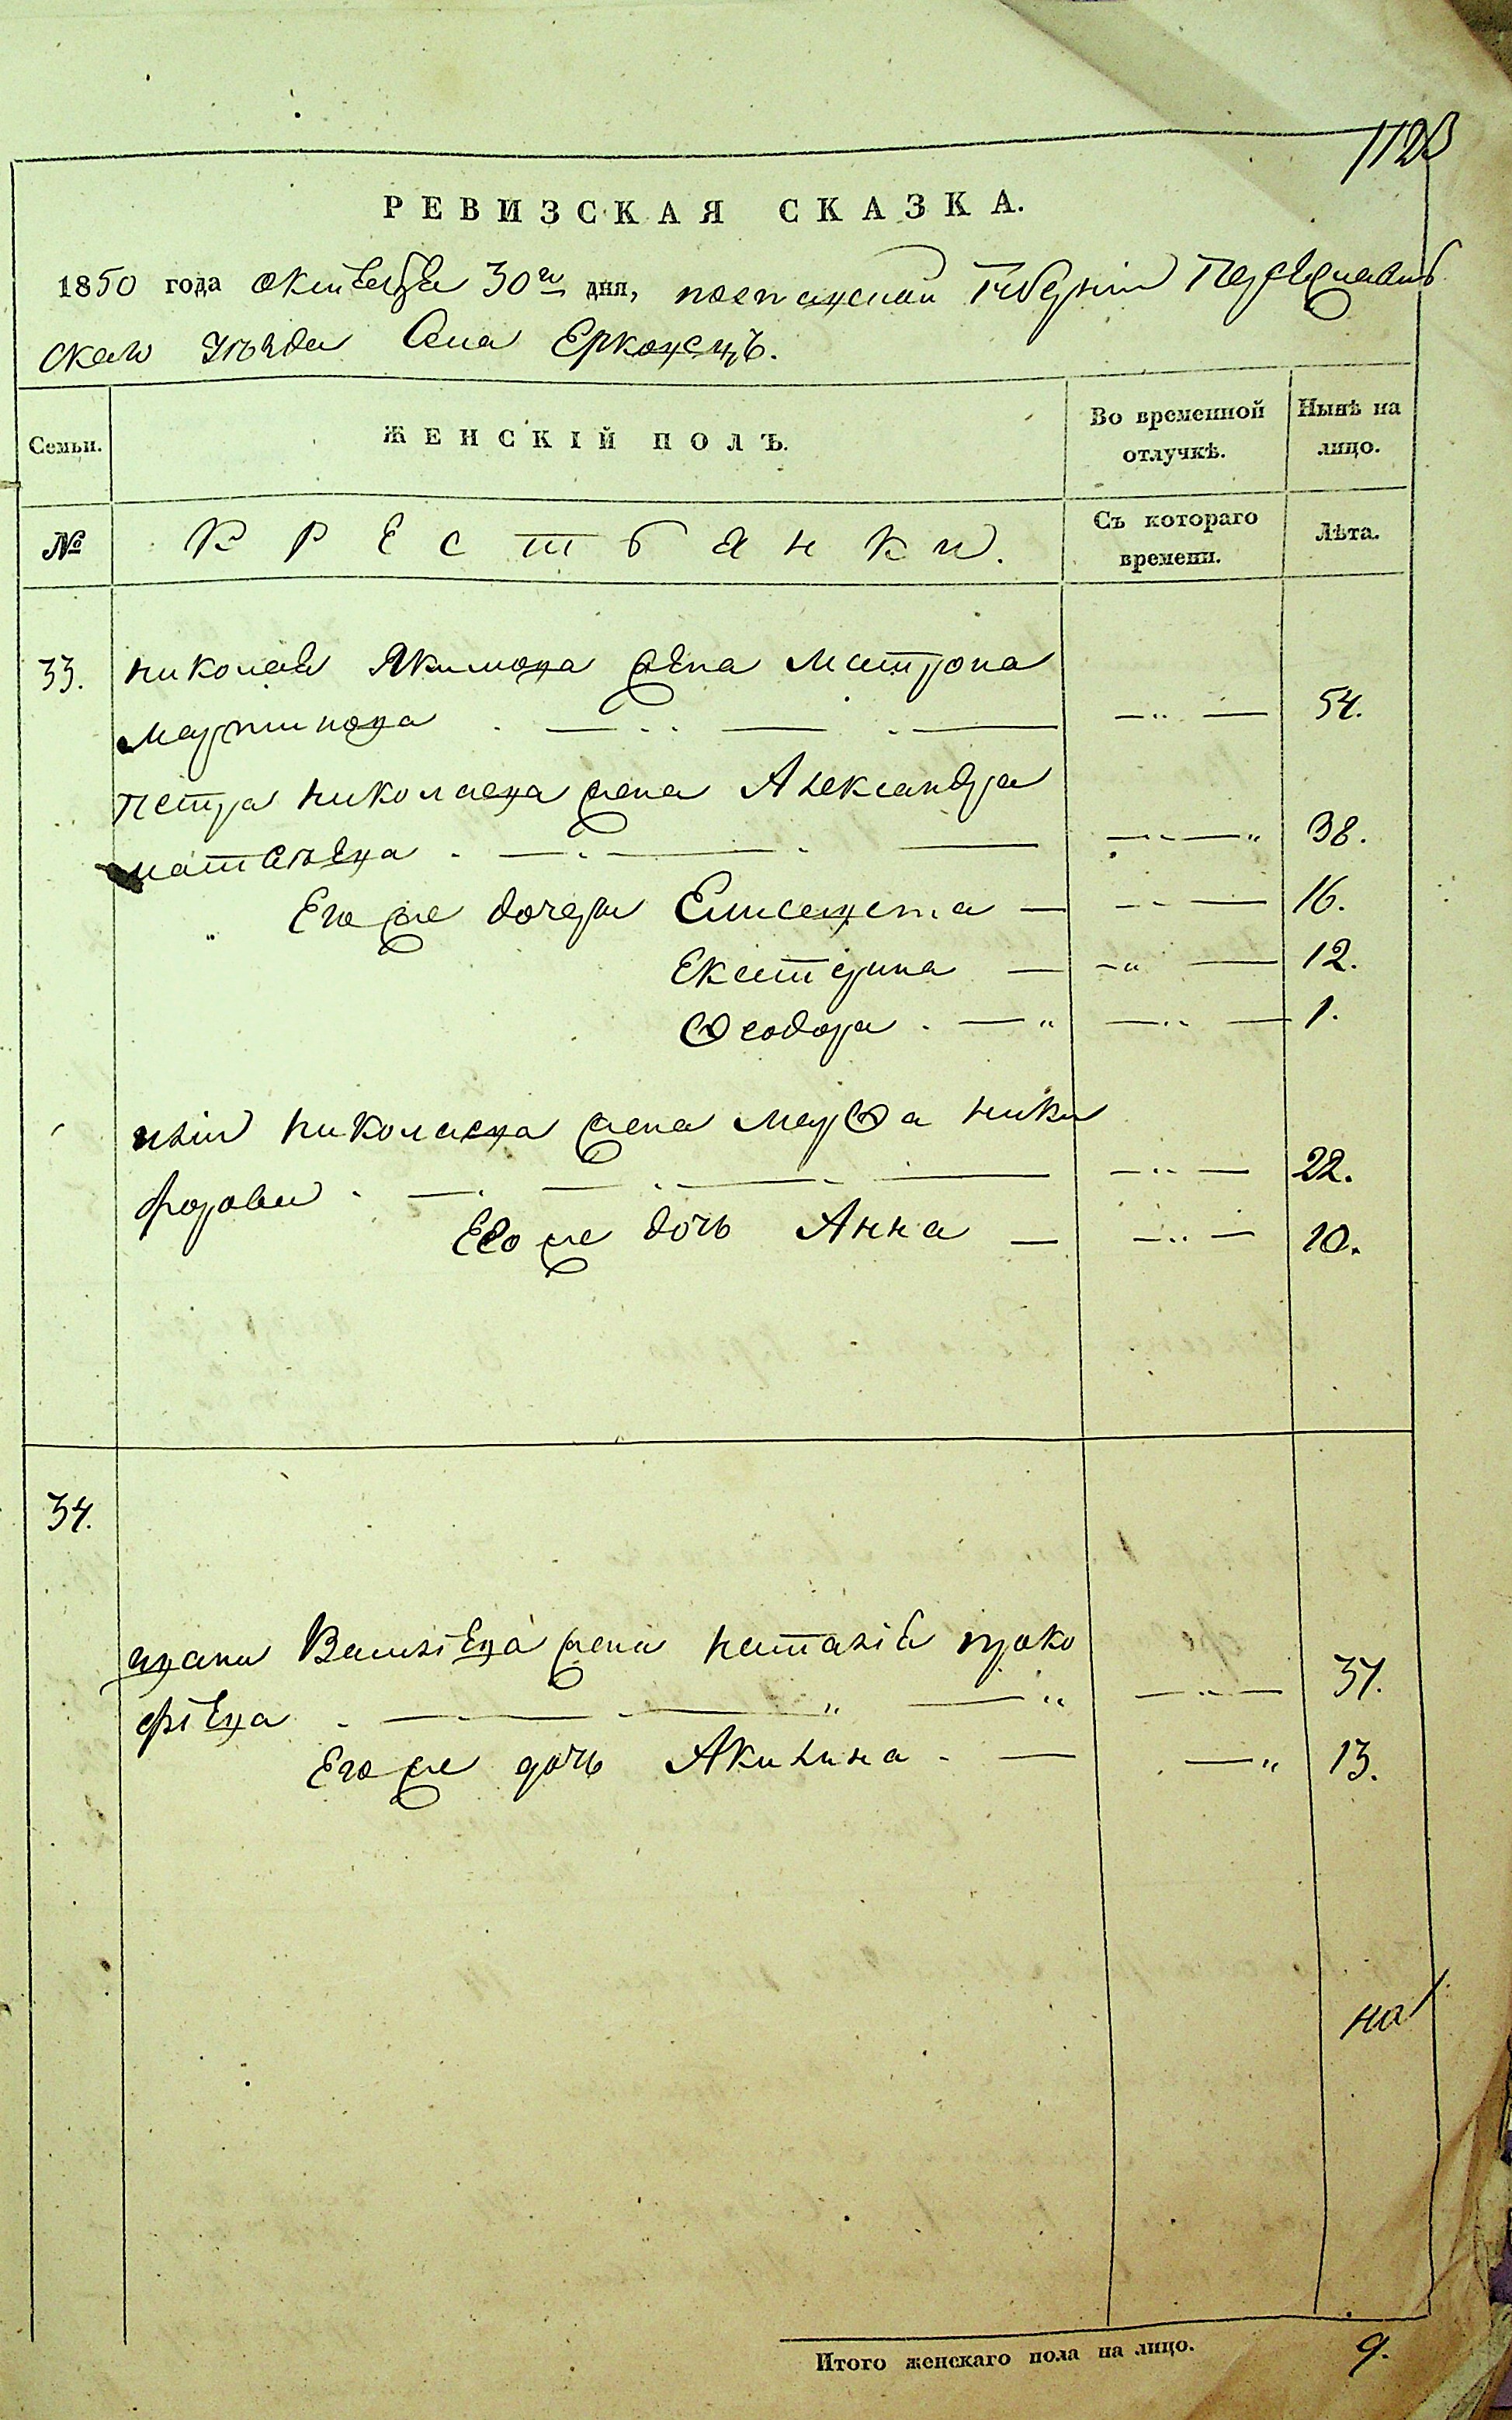 1123
РЕВИЗСКАЯ СКАЗКА.
1850 года октября 30го дня, полтавской Губерніи Переяслав
скаго уѣзда Села Ерковецъ.
Семьи.
ЖЕНСКІЙ ПОЛЪ.
Во временной отлучкѣ.
Ныне на лицо.
№
КРЕСТЬЯНКИ.
Съ котораго времени.
Лѣта.
33. николая Якимова жена Матрона
Мартинова 54.
петра николаева жена Александра
матвѣева 38.
Его же дочери Елисавета 16.
Екатерина 12.
Ѳеодора 1.
иліи николаева жена марѳа ники
форова 22.
Его же дочь Анна 10.
34.
ивана Василіева жена наталія проко
фіева 37.
Его же дочь Акилина 13.
на
Итого женскаго пола на лицо. 9.